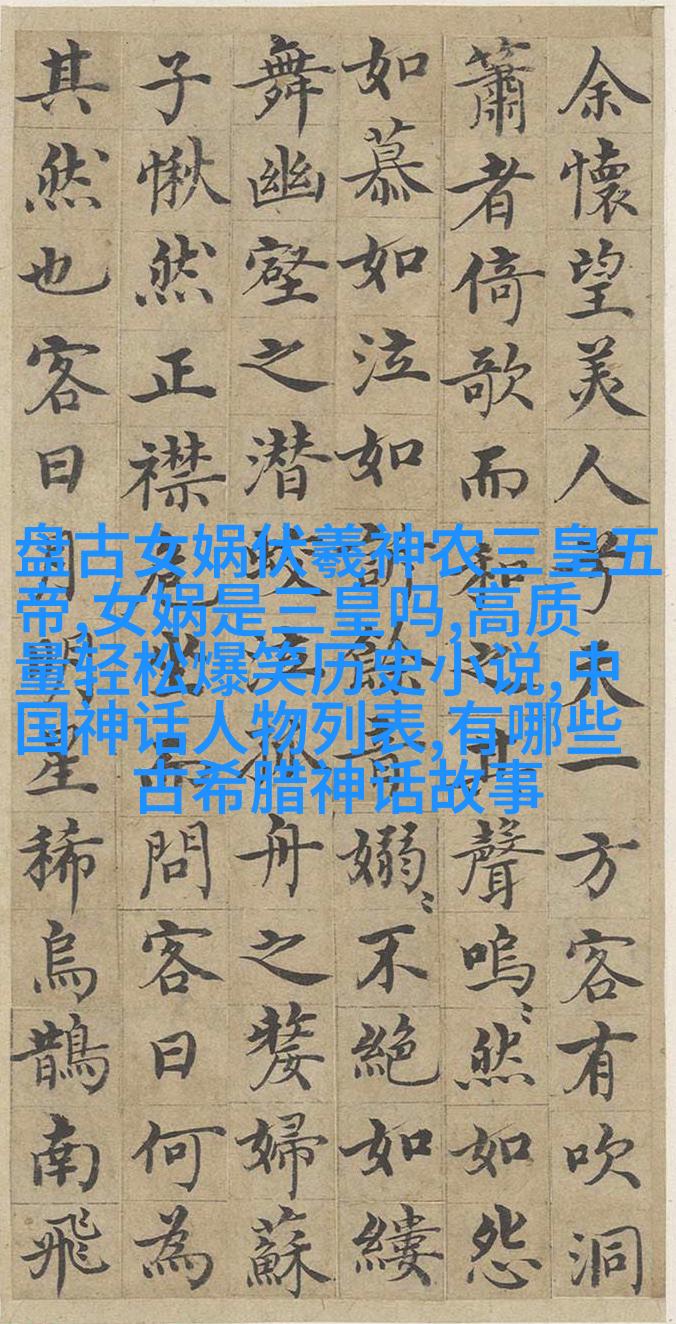 余懷望美人兮天一方客有吹洞
簫者倚歌而和之其聲嗚〻然如怨
如慕如泣如訴餘音嫋〻不絕如縷
舞幽壑之潛蛟泣孤舟之嫠婦蘇
子愀然正襟危坐而問客曰何為
其然也客曰月明星稀烏鵲南飛
盘古女娲伏羲神农三皇五
帝,女娲是三皇吗,高质
量轻松爆笑历史小说,中
国神话人物列表,有哪些
古希腊神话故事